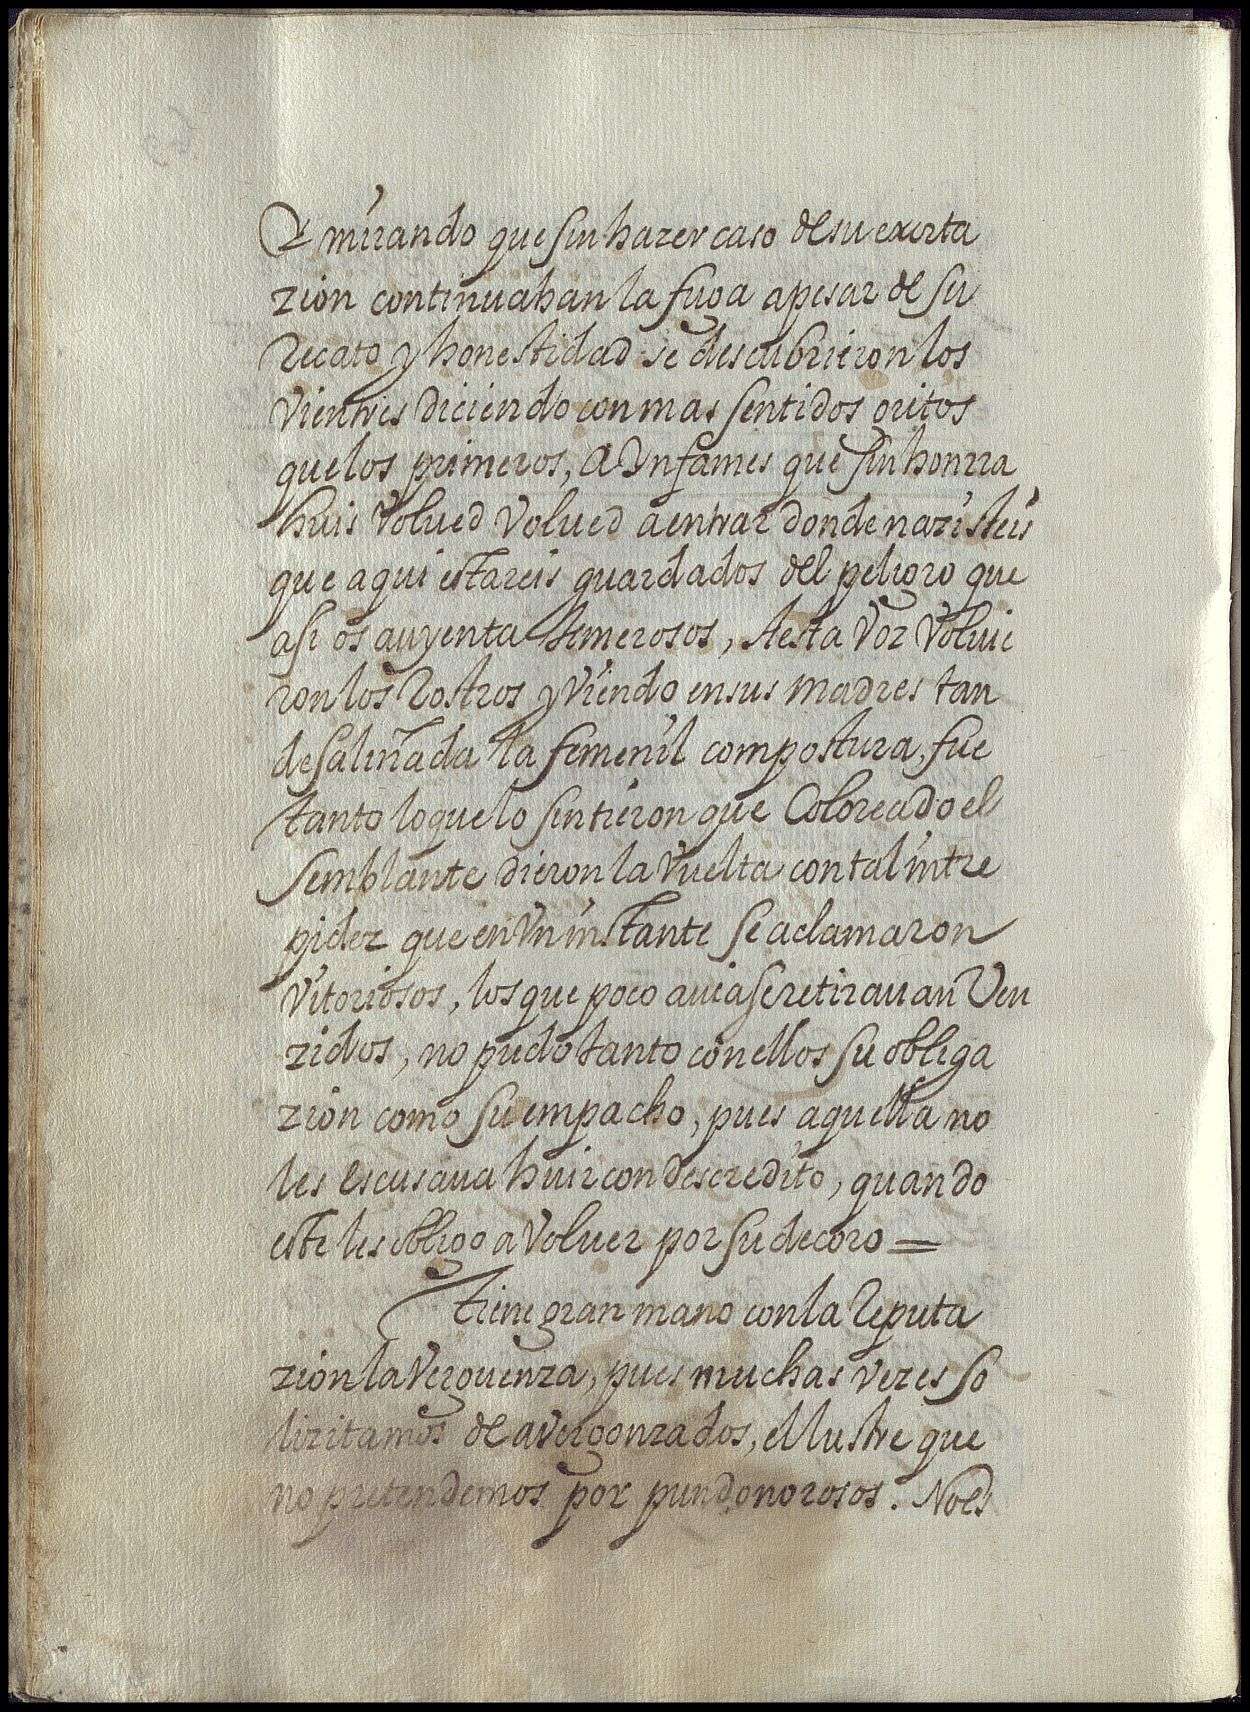 Y mirando que sin hazer caso de su exorta
zion continuaban la fuga apesar de su
recato y honestidad se descubrieron los
vientres diciendo con mas sentidos gritos
que los primeros, A Ynfames que sin honrra
huis volued volued a entrar donde nazisteis
que aqui estareis guardados del peligro que
asi os auyenta temerosos, A esta voz voluie
ron los rostros y viendo en sus madres tan
desaliñada la femenil compostura, fue
tanto lo que lo sintieron que Coloreado el
semblante dieron la vuelta con tal intre
pidez que en vn instante se aclamaron
vitoriosos, los que poco auia se retirauan Ven
zidos, no pudo tanto con ellos su obliga
zion como su empacho, pues aquella no
les escusaua huir con descredito, quando
este les obligo a voluer por su decoro =
Tiene gran mano con la reputa
zion la verguenza, pues muchas vezes so
lizitamos de avergonzados, el lustre que
no pretendemos por pundonorosos. No es